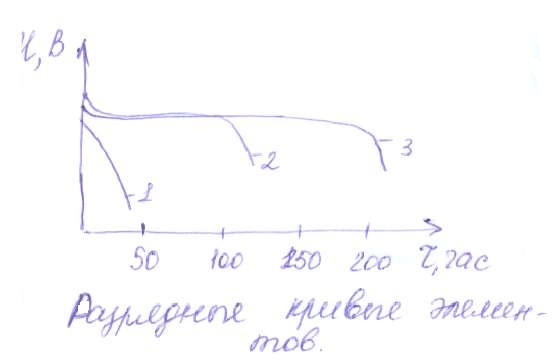 U, В
1
2
3
50 100 150 200 τ, час
Разрядные кривые элемен-
тов.